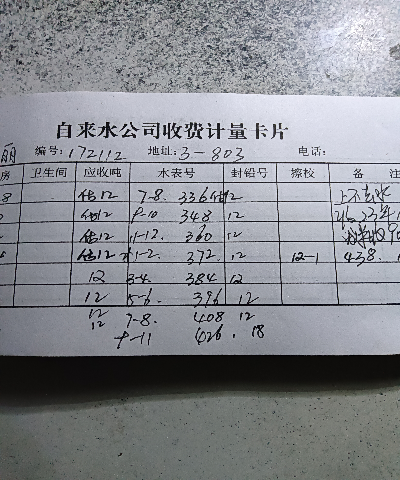 自来水公司收费计量卡片
丽 编号:172112 地址:3-803 电话:
房 卫生间 应收吨 水表号 封铅号 擦校 备 注
8 估12 7-8. 336 12 上不去水
估12 9-10 348 12 23年
估12 11-12. 360 12
估12 1-2. 372. 12 12-1 438.
12 3-4. 384 12
12 5-6. 396 12
12 7-8. 408 12
12 9-11 426. 18